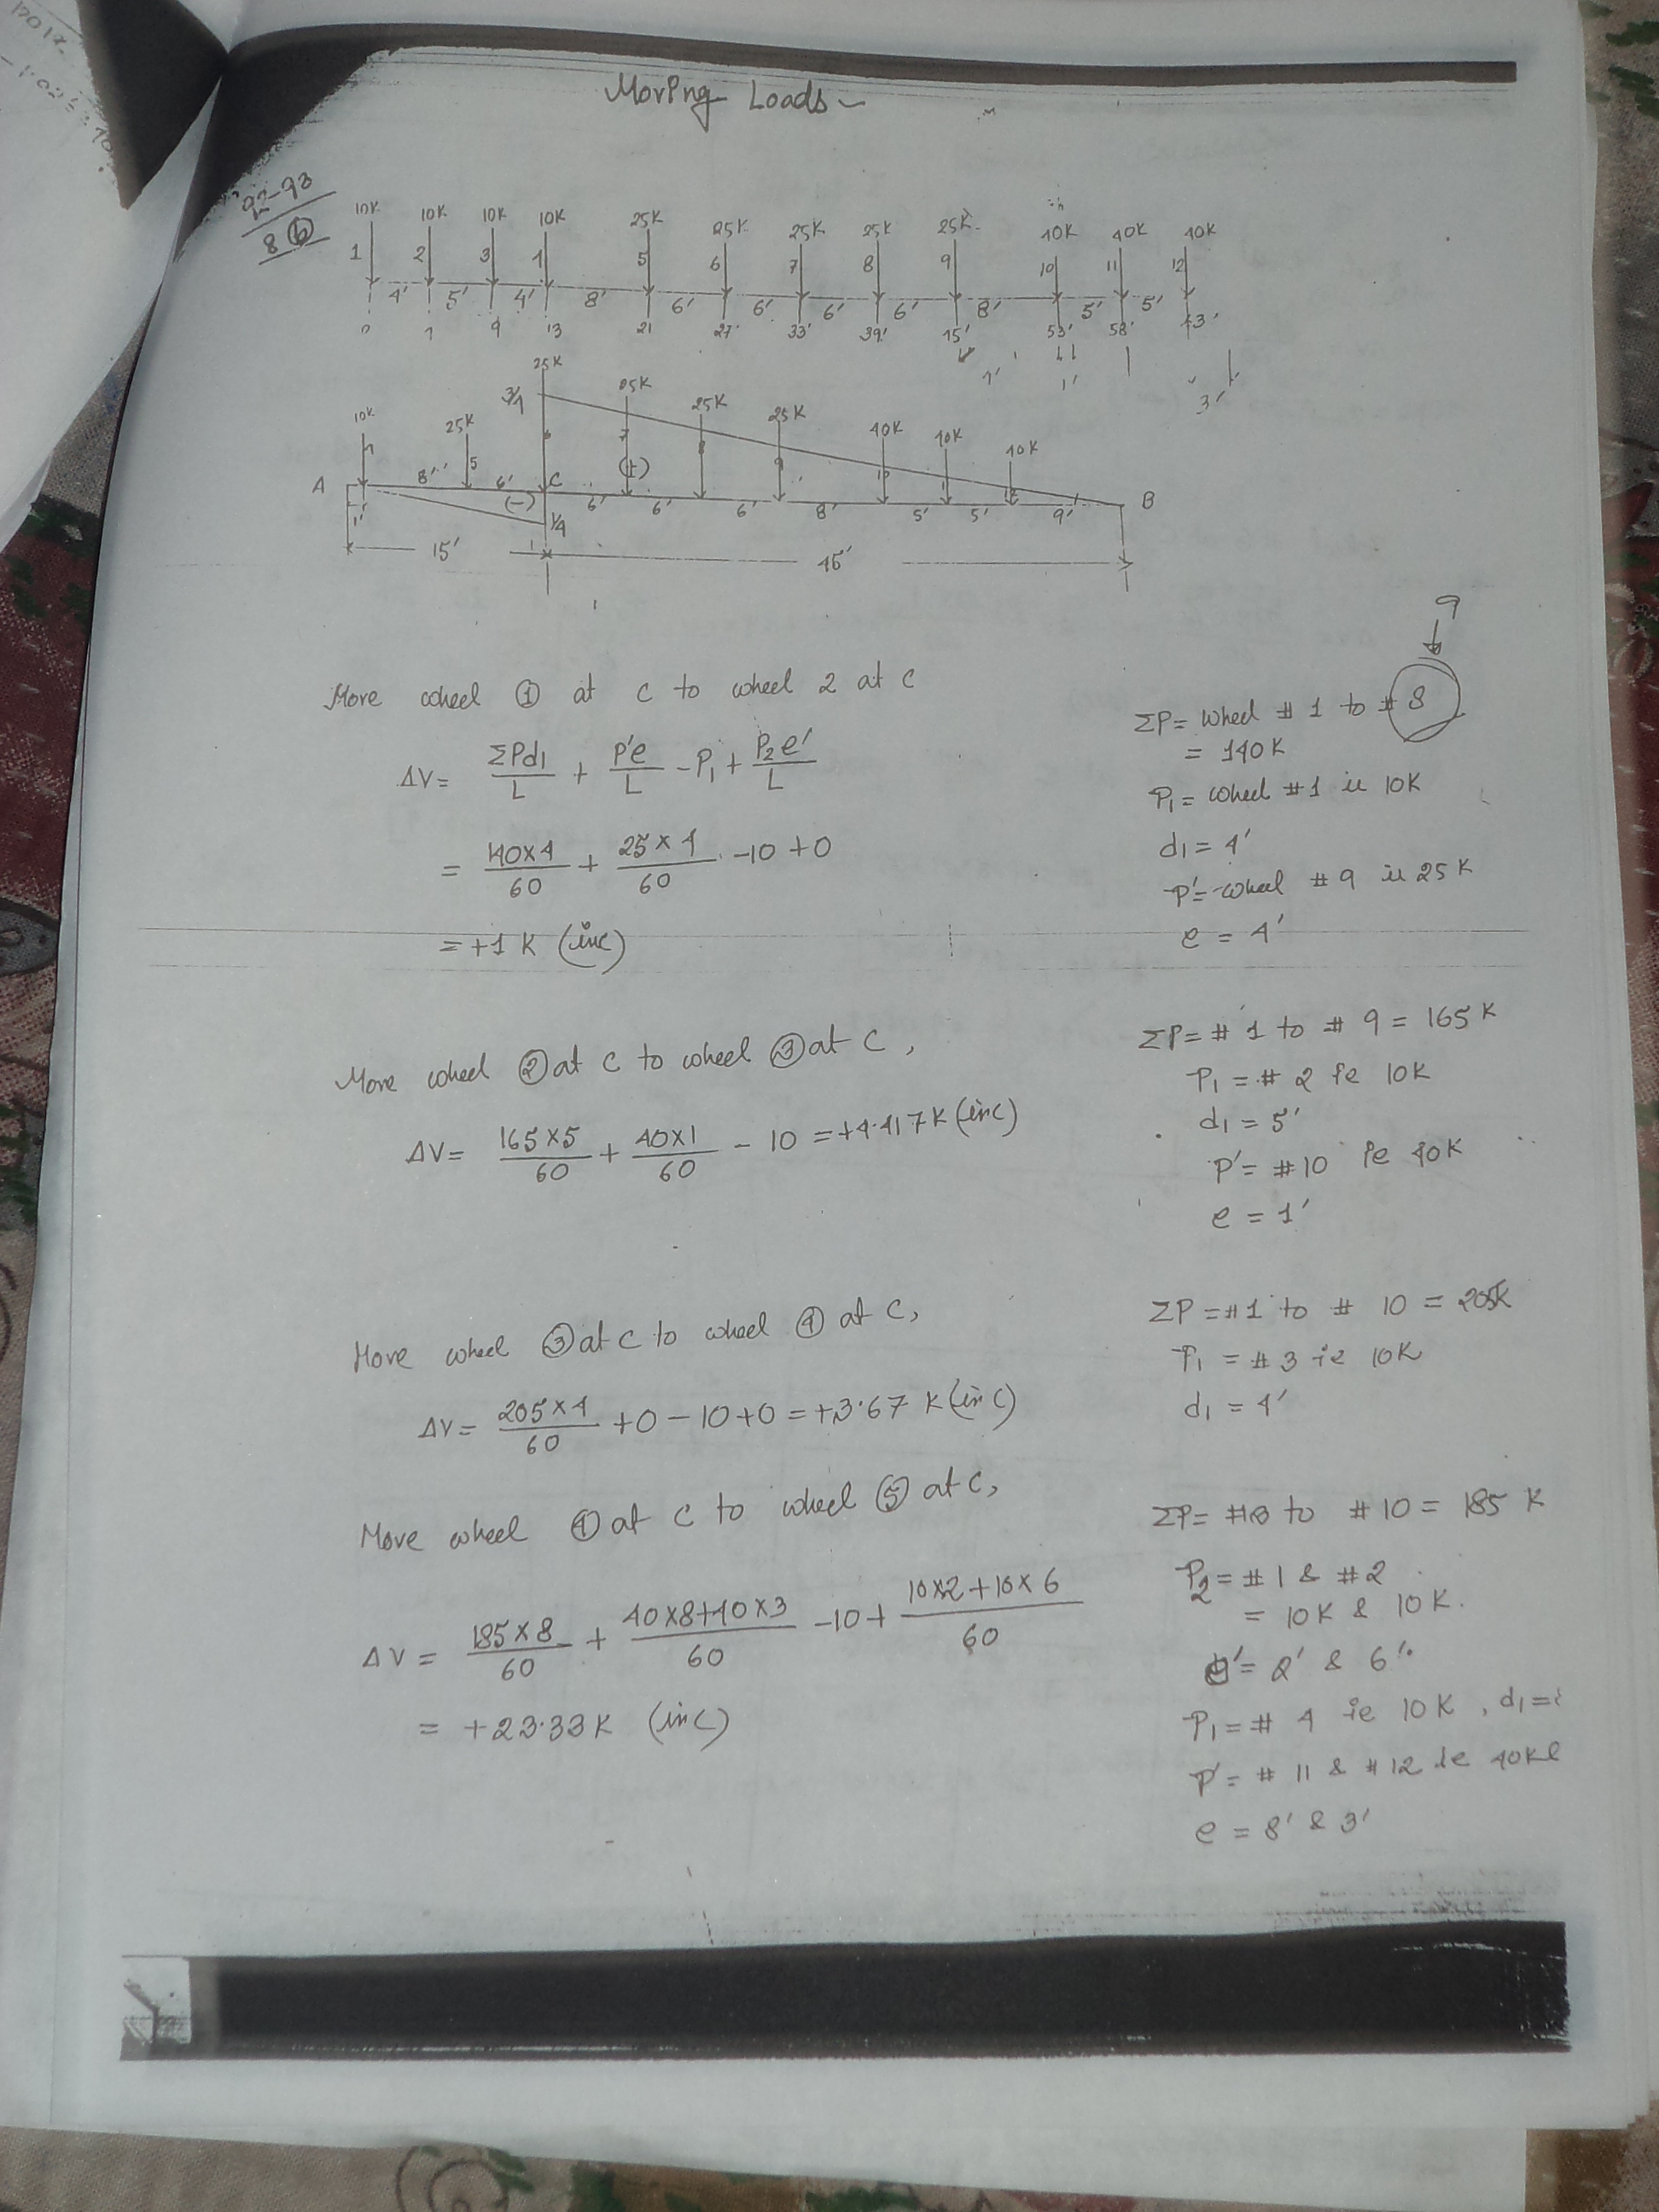 Moving Loads
92-93
8 (b)
10K 10K 10K 10K 25K 25K 25K 25K 25K 40K 40K 40K
1 2 3 4 5 6 7 8 9 10 11 12
4' 5' 4' 8' 6' 6' 6' 6' 8' 5' 5'
0 4 9 13 21 27' 33' 39' 45' 53' 58' 63'
1' 3'
10K 25K 25K 25K 25K 25K 40K 40K 40K
3/4
4 5 6 7 8 9 10 11 12
A 8' 6' C 6' 6' 6' 8' 5' 5' 9' B
(+)
(-)
1/4
1'
15' 45'
Move wheel ① at C to wheel 2 at C
ΔV = ΣPd1/L + P'e/L - P1 + P2e'/L
= 140×4/60 + 25×4/60 - 10 + 0
= +1 K (inc)
9
↓
ΣP = Wheel # 1 to # 8
= 140K
P1 = wheel #1 ie 10K
d1 = 4'
P' = wheel #9 ie 25K
e = 4'
Move wheel ② at C to wheel ③ at C,
ΔV = 165×5/60 + 40×1/60 - 10 = +4.417K (inc)
ΣP = # 1 to # 9 = 165K
P1 = # 2 ie 10K
d1 = 5'
P' = #10 ie 40K
e = 1'
Move wheel ③ at C to wheel ④ at C,
ΔV = 205×4/60 + 0 - 10 + 0 = +3.67 K (inc)
ΣP = #1 to # 10 = 205K
P1 = #3 ie 10K
d1 = 4'
Move wheel ④ at C to wheel ⑤ at C,
ΔV = 185×8/60 + 40×8+40×3/60 - 10 + 10×2+10×6/60
= +23.33K (inc)
ΣP = #3 to # 10 = 185 K
P2 = #1 & #2
= 10K & 10K.
e' = 2' & 6'
P1 = # 4 ie 10K, d1 =
P' = # 11 & #12 ie 40K &
e = 8' & 3'